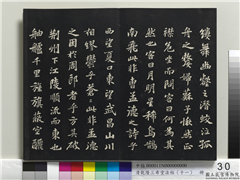 縷舞幽壑之潛蛟泣孤
舟之嫠婦蘇子愀然正
襟危坐而問客曰何為其
然也客曰月明星稀烏鵲
南飛此非曹孟德之詩乎
西望夏口東望武昌山川
相繆鬱乎蒼蒼此非孟德
之困於周郎者乎方其破
荊州下江陵順流而東也
舳艫千里旌旗蔽空釃
30
國立故宮博物院